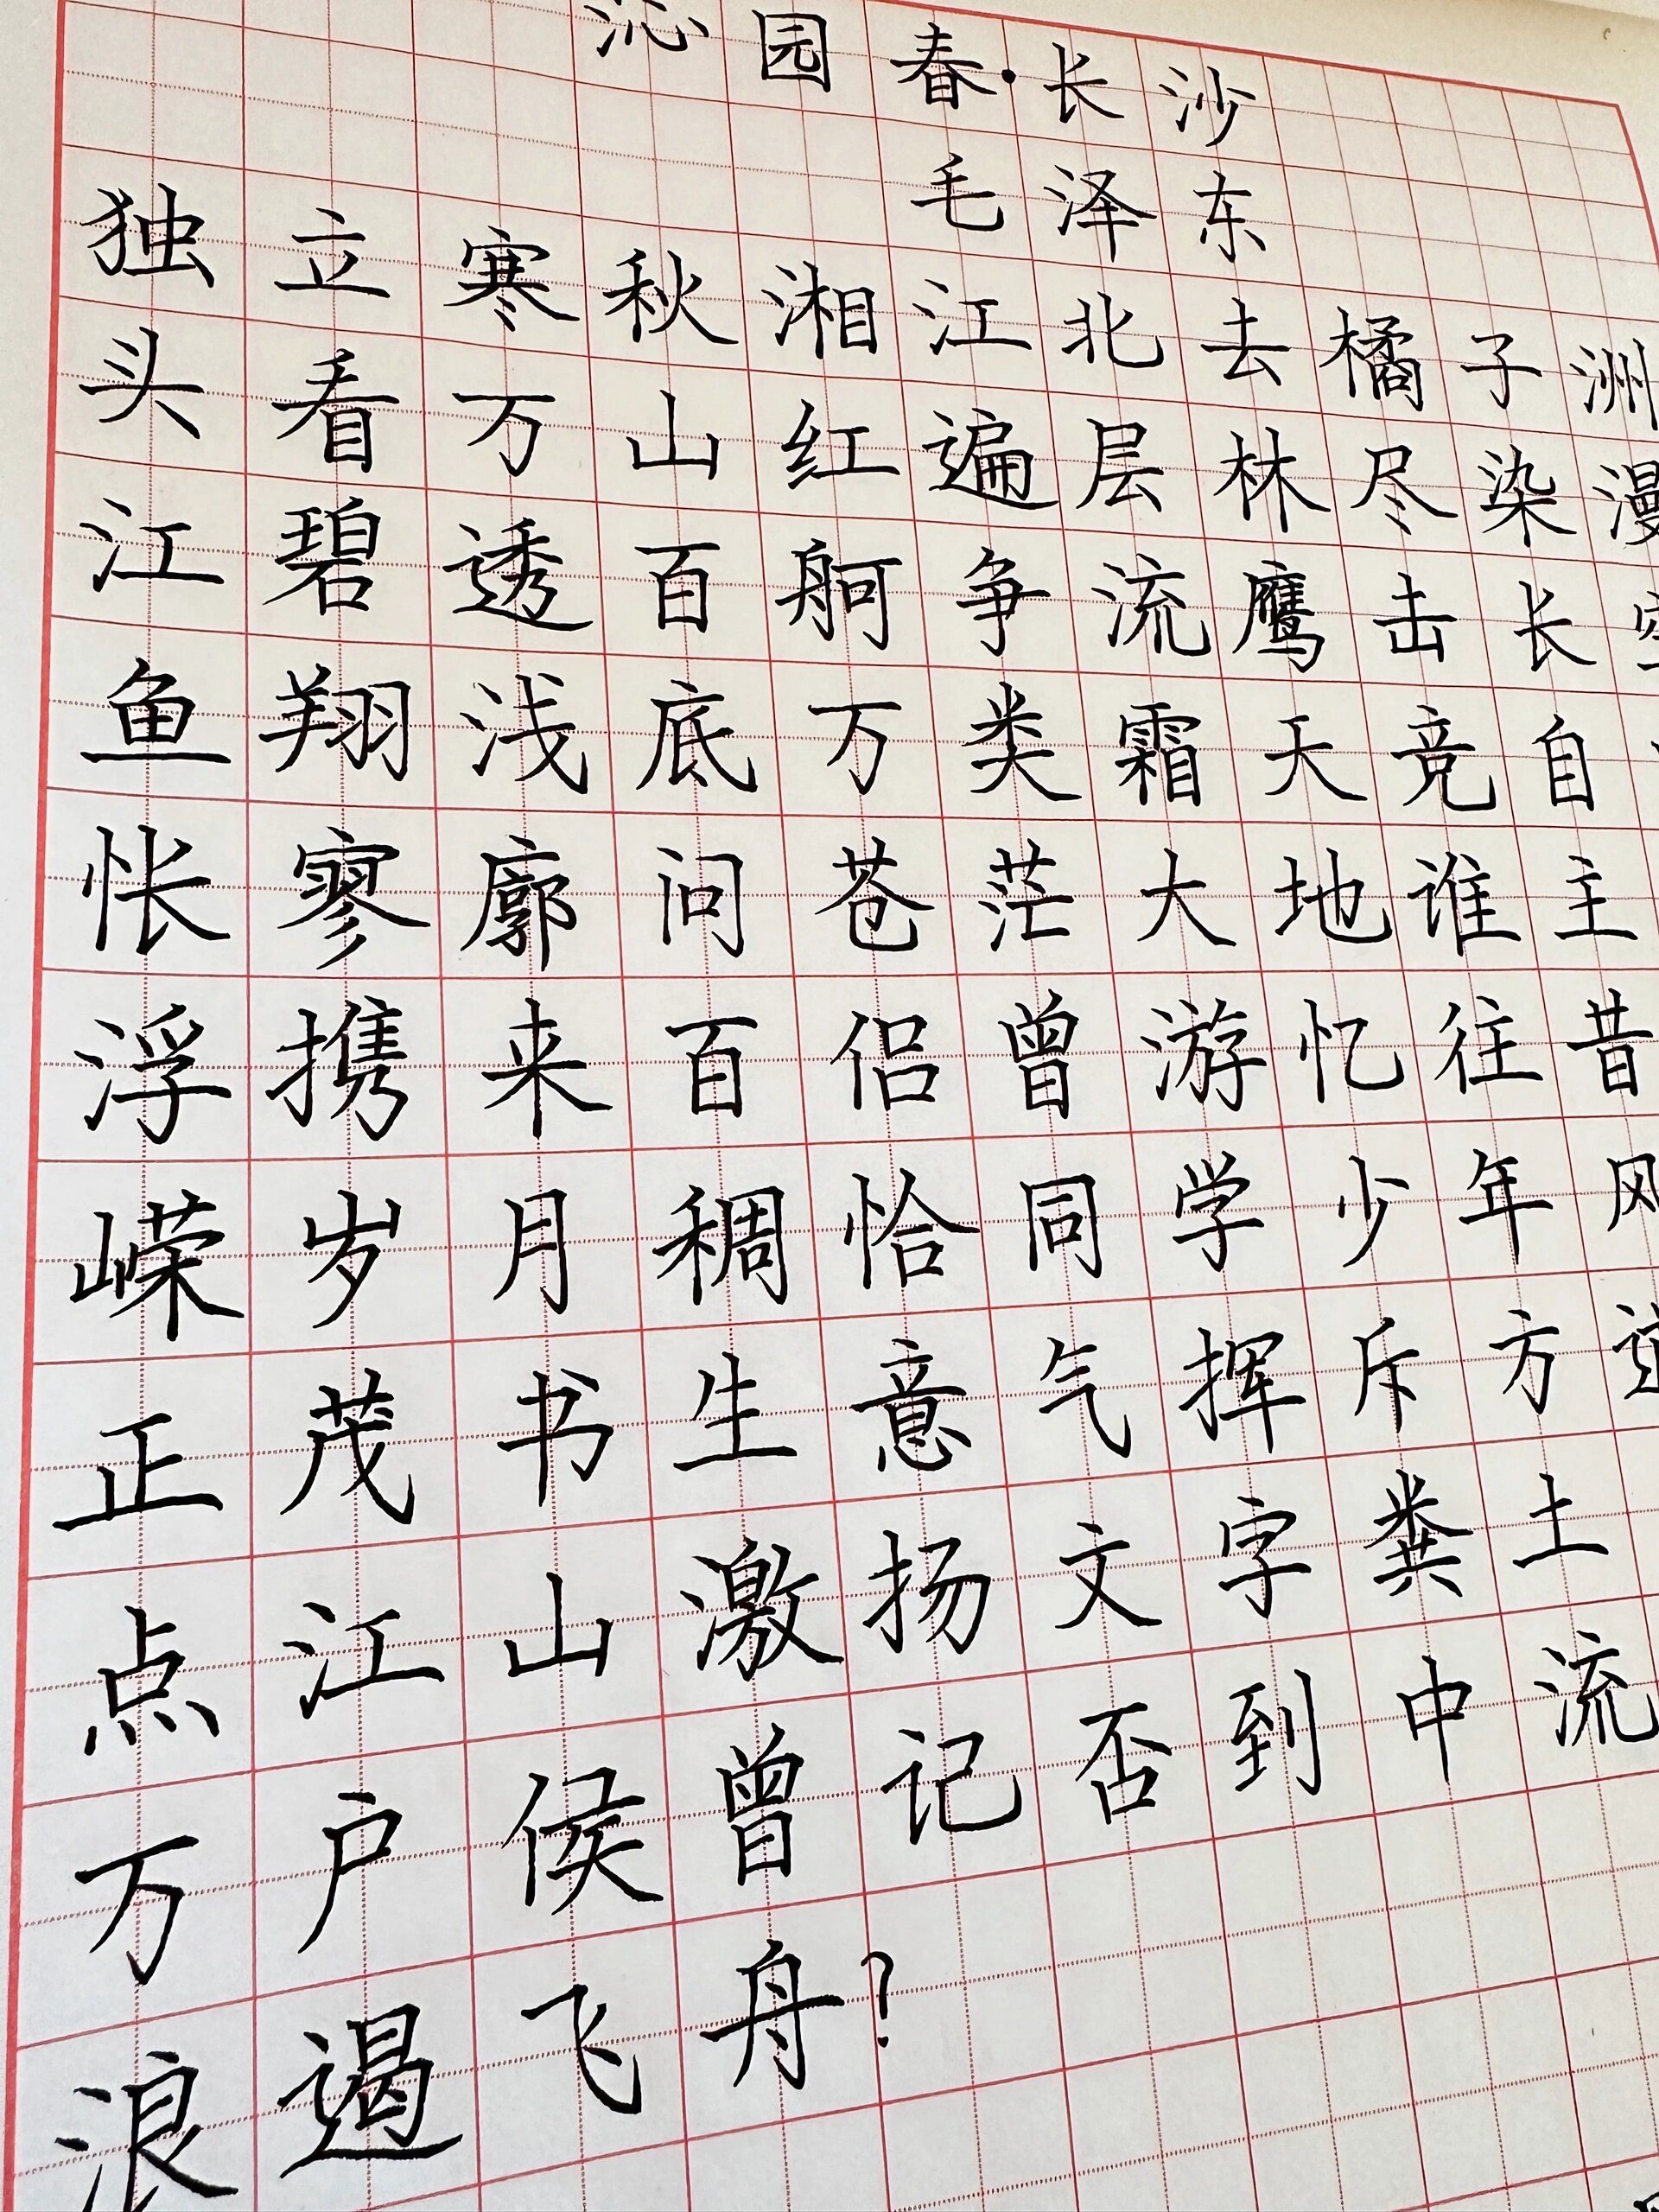 沁园春·长沙
毛泽东
独立寒秋湘江北去橘子洲
头看万山红遍层林尽染漫
江碧透百舸争流鹰击长空
鱼翔浅底万类霜天竞自
怅寥廓问苍茫大地谁主
浮携来百侣曾游忆往昔
嵘岁月稠恰同学少年风
正茂书生意气挥斥方遒
点江山激扬文字粪土
万户侯曾记否到中流
浪遏飞舟?